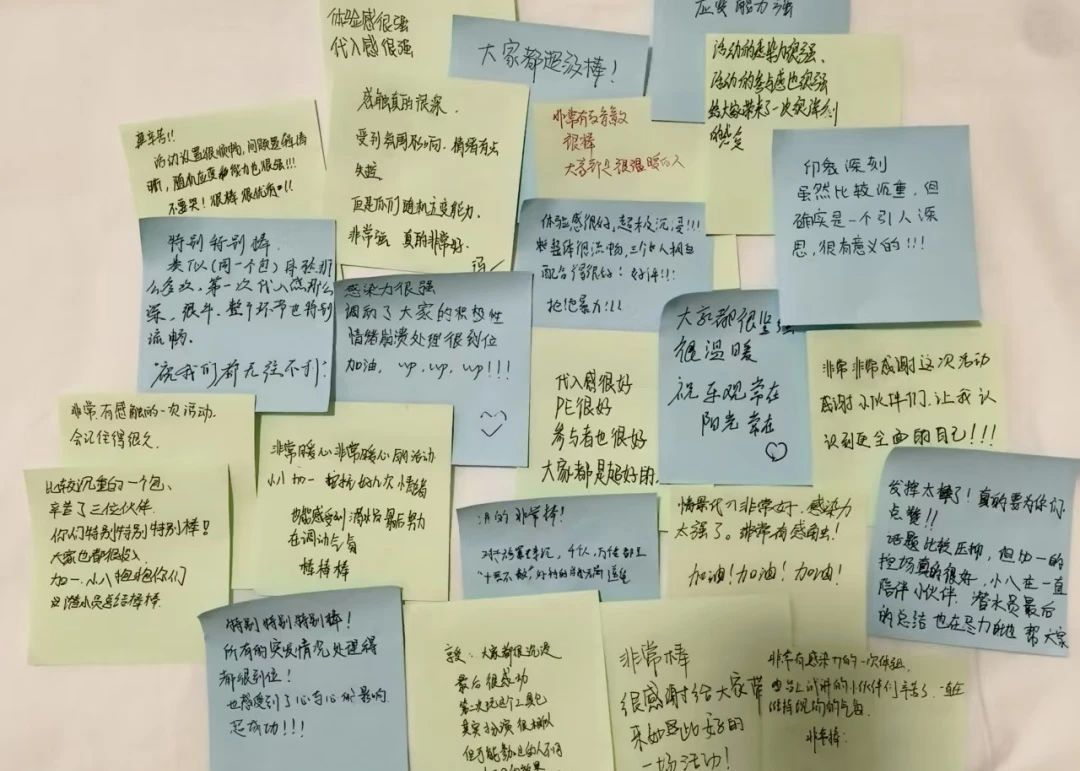 体验感很强
代入感很强
大家都超级棒！
应变能力强
活动的感染力很强、
活动的参与感也很强
给大家带来了一次很深刻
的感觉
真辛苦!!
活动设置很顺畅,问题显得清
晰，随机应变的能力也很强!!!
不要哭！很棒 很优秀!!
感触真的很深.
受到氛围影响，情绪有些
失控
但是你们随机应变能力.
非常强 真的非常好.
非常有
很棒
大家都是很温暖的人
印象深刻
虽然比较沉重，但
确实是一个引人深
思，很有意义的!!!
特别特别棒.
类似(同一个包)体验那
么多次，第一次代入感那么
深，很牛、整个环节也特别
流畅.
“庇我们都无往不利”
体验感很好,超极沉浸!!!
整体很流畅,三个人相互
配合得很好！好评!!!
抱抱暴力!!!
感染力很强
调动了大家的积极性
情绪崩溃处理很到位
加油，up,up,up!!!
大家都很坚强
很温暖
祝 乐观常在
阳光常在
代入感很好
PE很好
参与者也很好
大家都是超好的.
非常非常感谢这次活动
感谢小伙伴们.让我认
识到更全面的自己!!!
非常有感触的一次活动.
会记住得很久.
比较沉重的一个包、
辛苦了三位伙伴.
你们特别特别特别棒!
大家也都很投入
加一、小八 抱抱你们
潜水员总结棒棒.
非常暖心非常暖心的活动
小八加一 情绪
也能感受到 潜水员最后努力
在调动气氛
棒棒棒
非常棒！
情景代入非常好．感染力
太强了。非常有感触！
加油！加油！加油！
发挥太棒了！真的要为你们
点赞!!
话题比较压抑，但加一的
控场真的很好，小八在一直
陪伴小伙伴．潜水员最后
的总结也在尽力地帮大家
特别特别特别棒！
所有的突发情况处理得
都很到位！
也感受到了心与心的影响
超成功!!!
大家都很沉浸
最后很成功
第二次玩这个工具包
真实扮演 很相似
非常棒
很感谢给大家带
来如此好的
一场活动！
非常有感染力的一次体验.
台上试讲的小伙伴们辛苦了．一直在
维持现场的气氛.
非常棒！